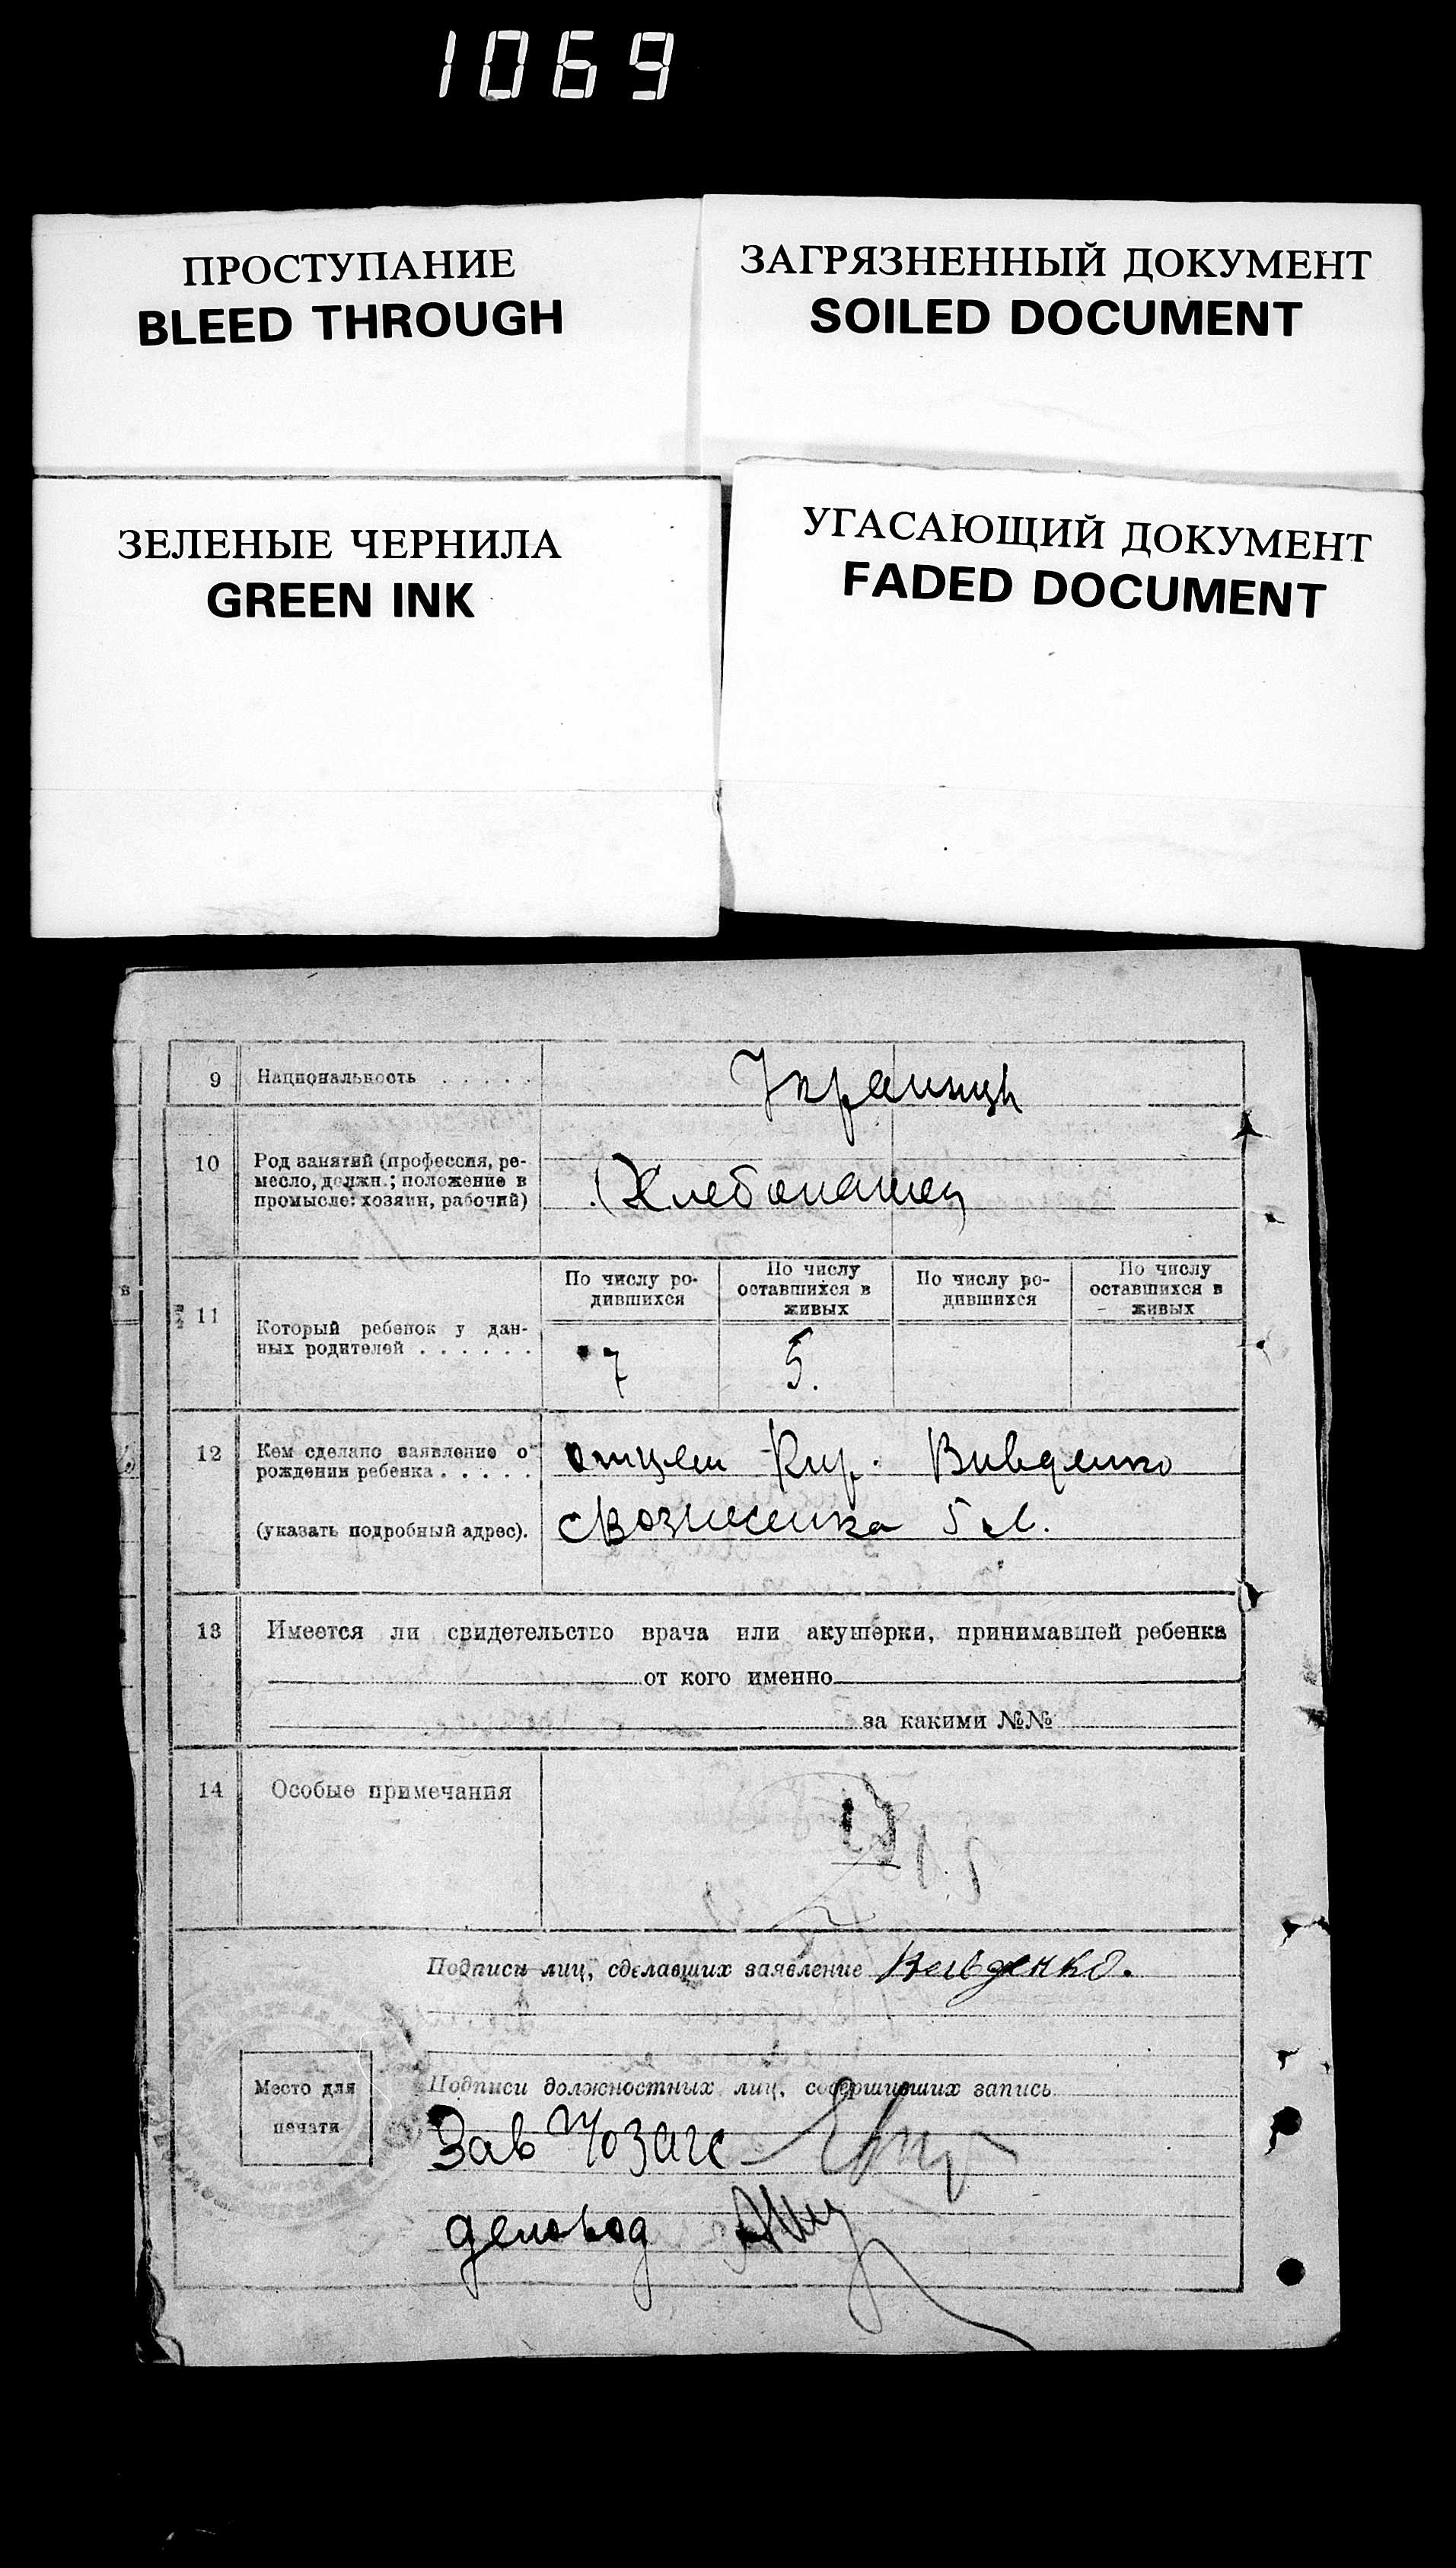 1069
ПРОСТУПАНИЕ
BLEED THROUGH
ЗАГРЯЗНЕННЫЙ ДОКУМЕНТ
SOILED DOCUMENT
ЗЕЛЕНЫЕ ЧЕРНИЛА
GREEN INK
УГАСАЮЩИЙ ДОКУМЕНТ
FADED DOCUMENT
9 Национальность . . . . .
Украинцы
10 Род занятий (профессия, ре-
месло, должн.; положение в
промысле: хозяин, рабочий)
Хлебопашец
11 Который ребенок у дан-
ных родителей . . . . . .
По числу ро-
дившихся
По числу
оставшихся в
живых
По числу ро-
дившихся
По числу
оставшихся в
живых
7 5.
12 Кем сделано заявление о
рождении ребенка . . . . .
(указать подробный адрес).
отцем Кир. Вивденко
с Вознесенка 5
13 Имеется ли свидетельство врача или акушерки, принимавшей ребенка
от кого именно
за какими №№
14 Особые примечания
Подписи лиц, сделавших заявление Вивденко.
Место для
печати
Подписи должностных лиц, совершивших запись
Зав
деловод